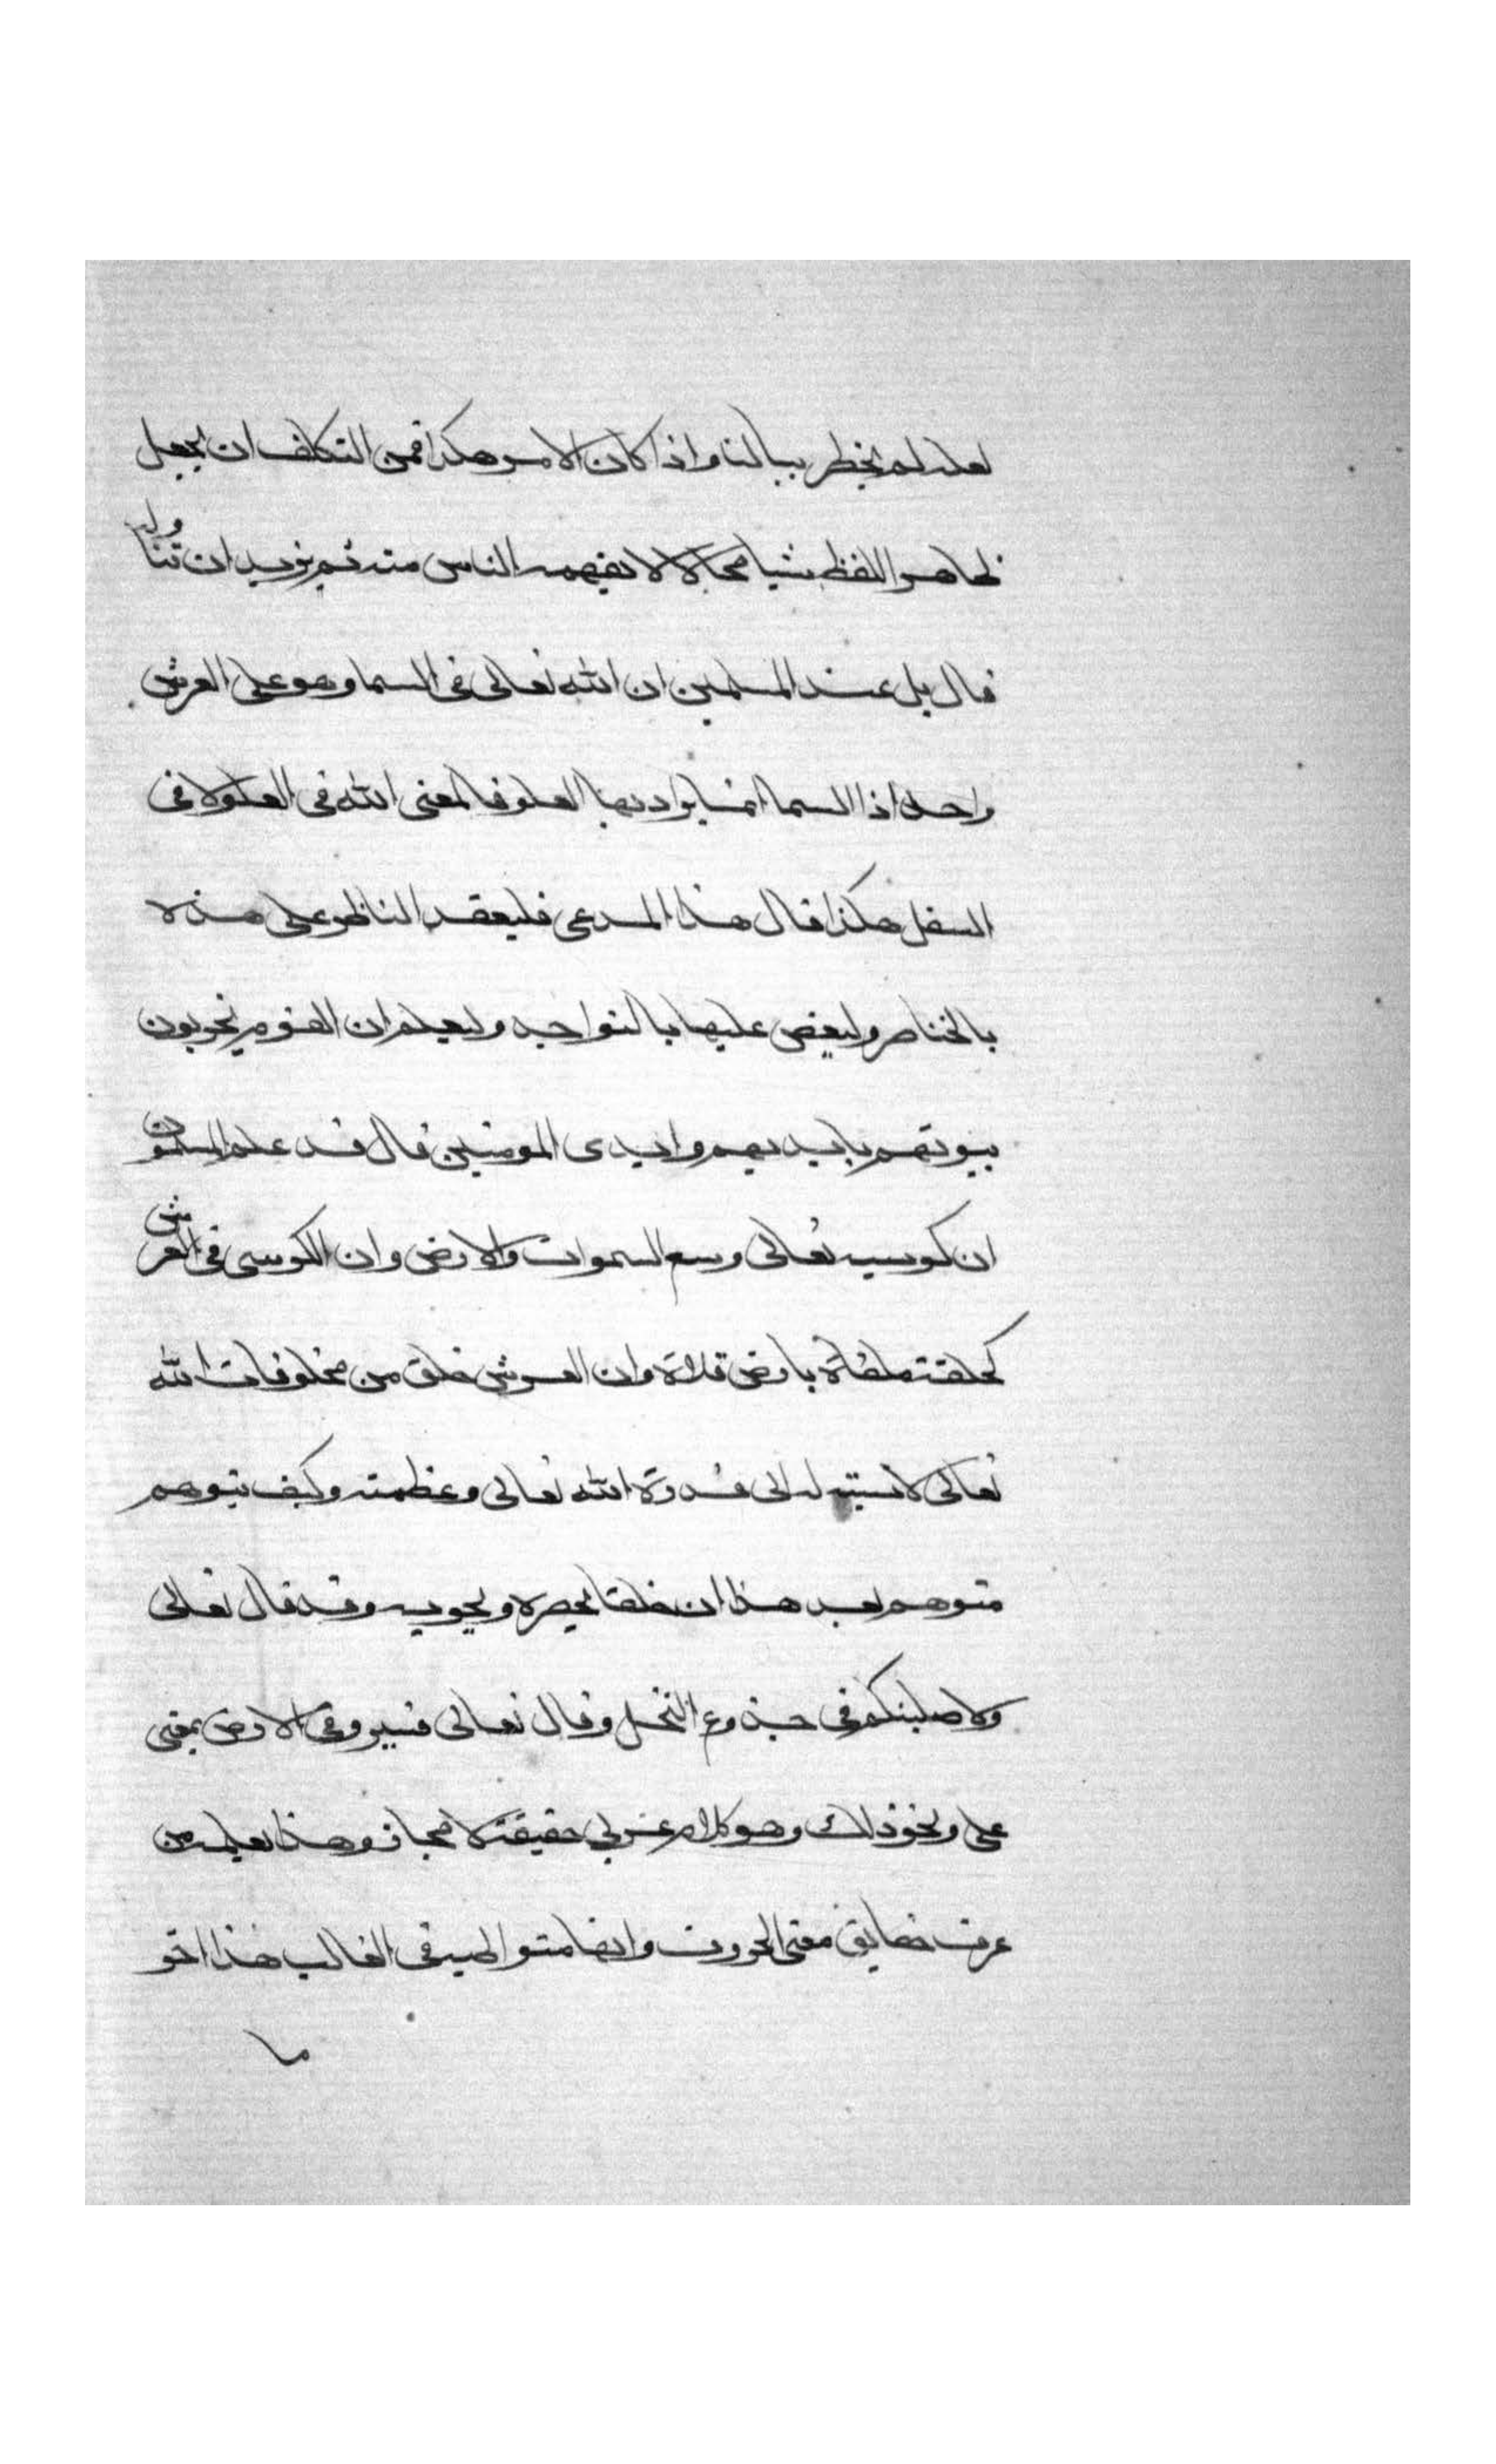 لعله لم يخطر ببالنا واذا كان الامر هكذا فمن التكلف ان يجعل
ظاهر اللفظ شيا محالا لا يفهمه الناس منه ثم يريد ان تتناوله
قال بل عند المسلمين ان الله تعالى فى السما وهو على العرش
واحد اذ السما انما يراد بها العلو فالمعنى الله فى العلو لا فى
السفل هكذا قال هذا المدعى فليعقد الناظر على هذه
بالخناصر وليعض عليها بالنواجد وليعلم ان القوم يخربون
بيوتهم بايديهم وايدى المومنين قال قد علم المسلمون
ان كرسيه تعالى وسع السموات والارض وان الكرسى فى العرش
كحلقة ملقاة بارض فلاة وان العرش خلق من مخلوقات الله
تعالى لا نسبة له الى قدرة الله تعالى وعظمته وكيف يتوهم
متوهم بعد هذا ان خلقا يحصره ويحويه وقد قال تعالى
ولاصلبنكم فى جذوع النخل وقال تعالى فسيروا فى الارض بمعنى
على ونحو ذلك وهو كلام عربي حقيقة لا مجاز وهذا يعلمه من
عرف حقايق معنى الحروف وانها متواطية فى الغالب هذا اخر
ما